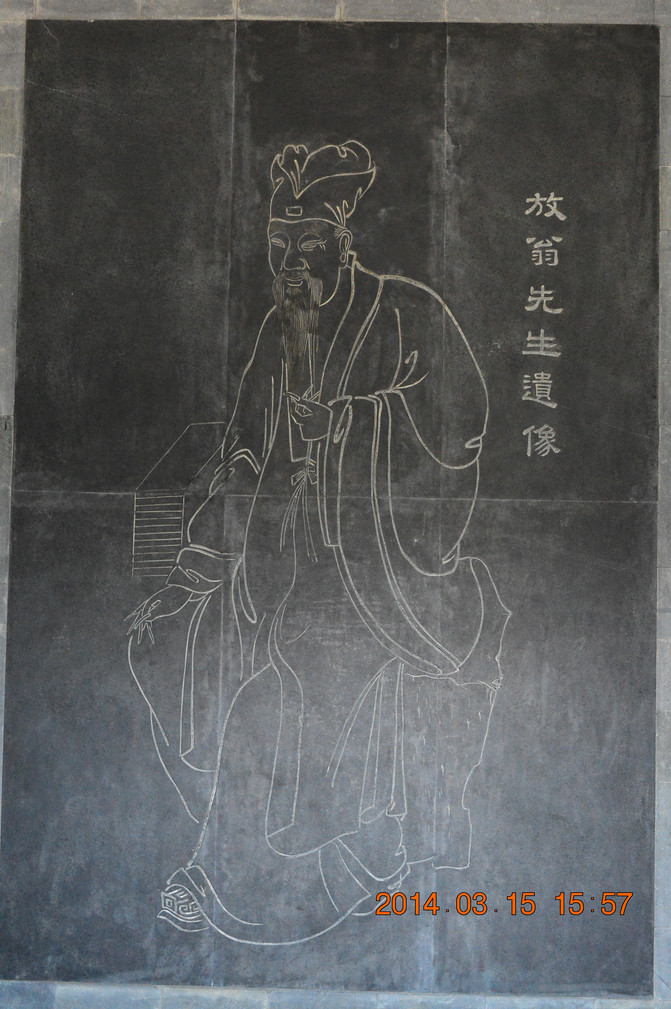 放翁先生遺像
2014.03.15 15:57